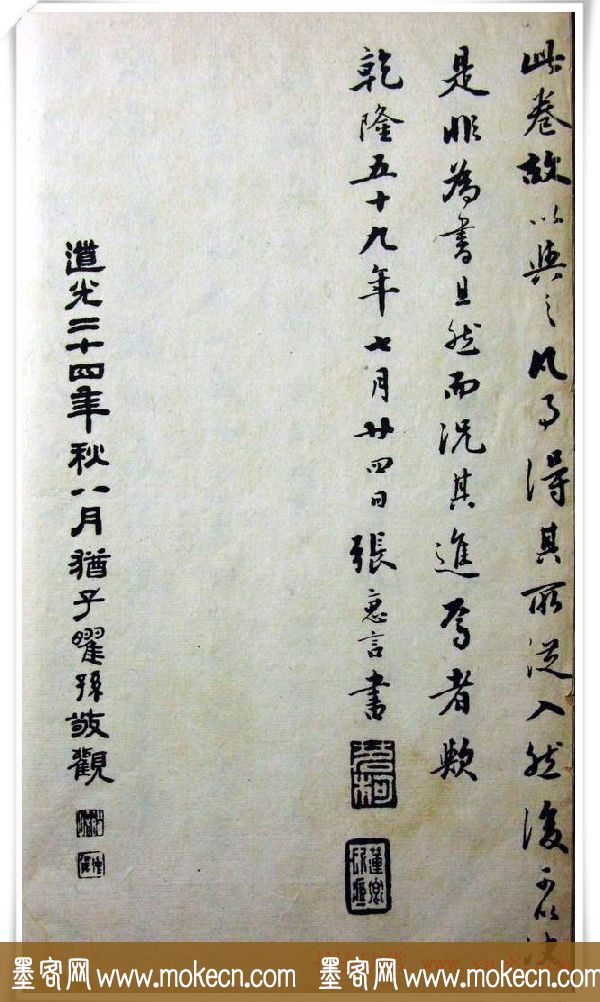 此卷故以与之凡事得其所从入然後可以决
是非为书且然而况其进焉者欤
乾隆五十九年七月廿四日张惠言书
道光二十四年秋八月犹子曜孙敬观
墨客网 www.mokecn.com 墨客网 www.mokecn.com